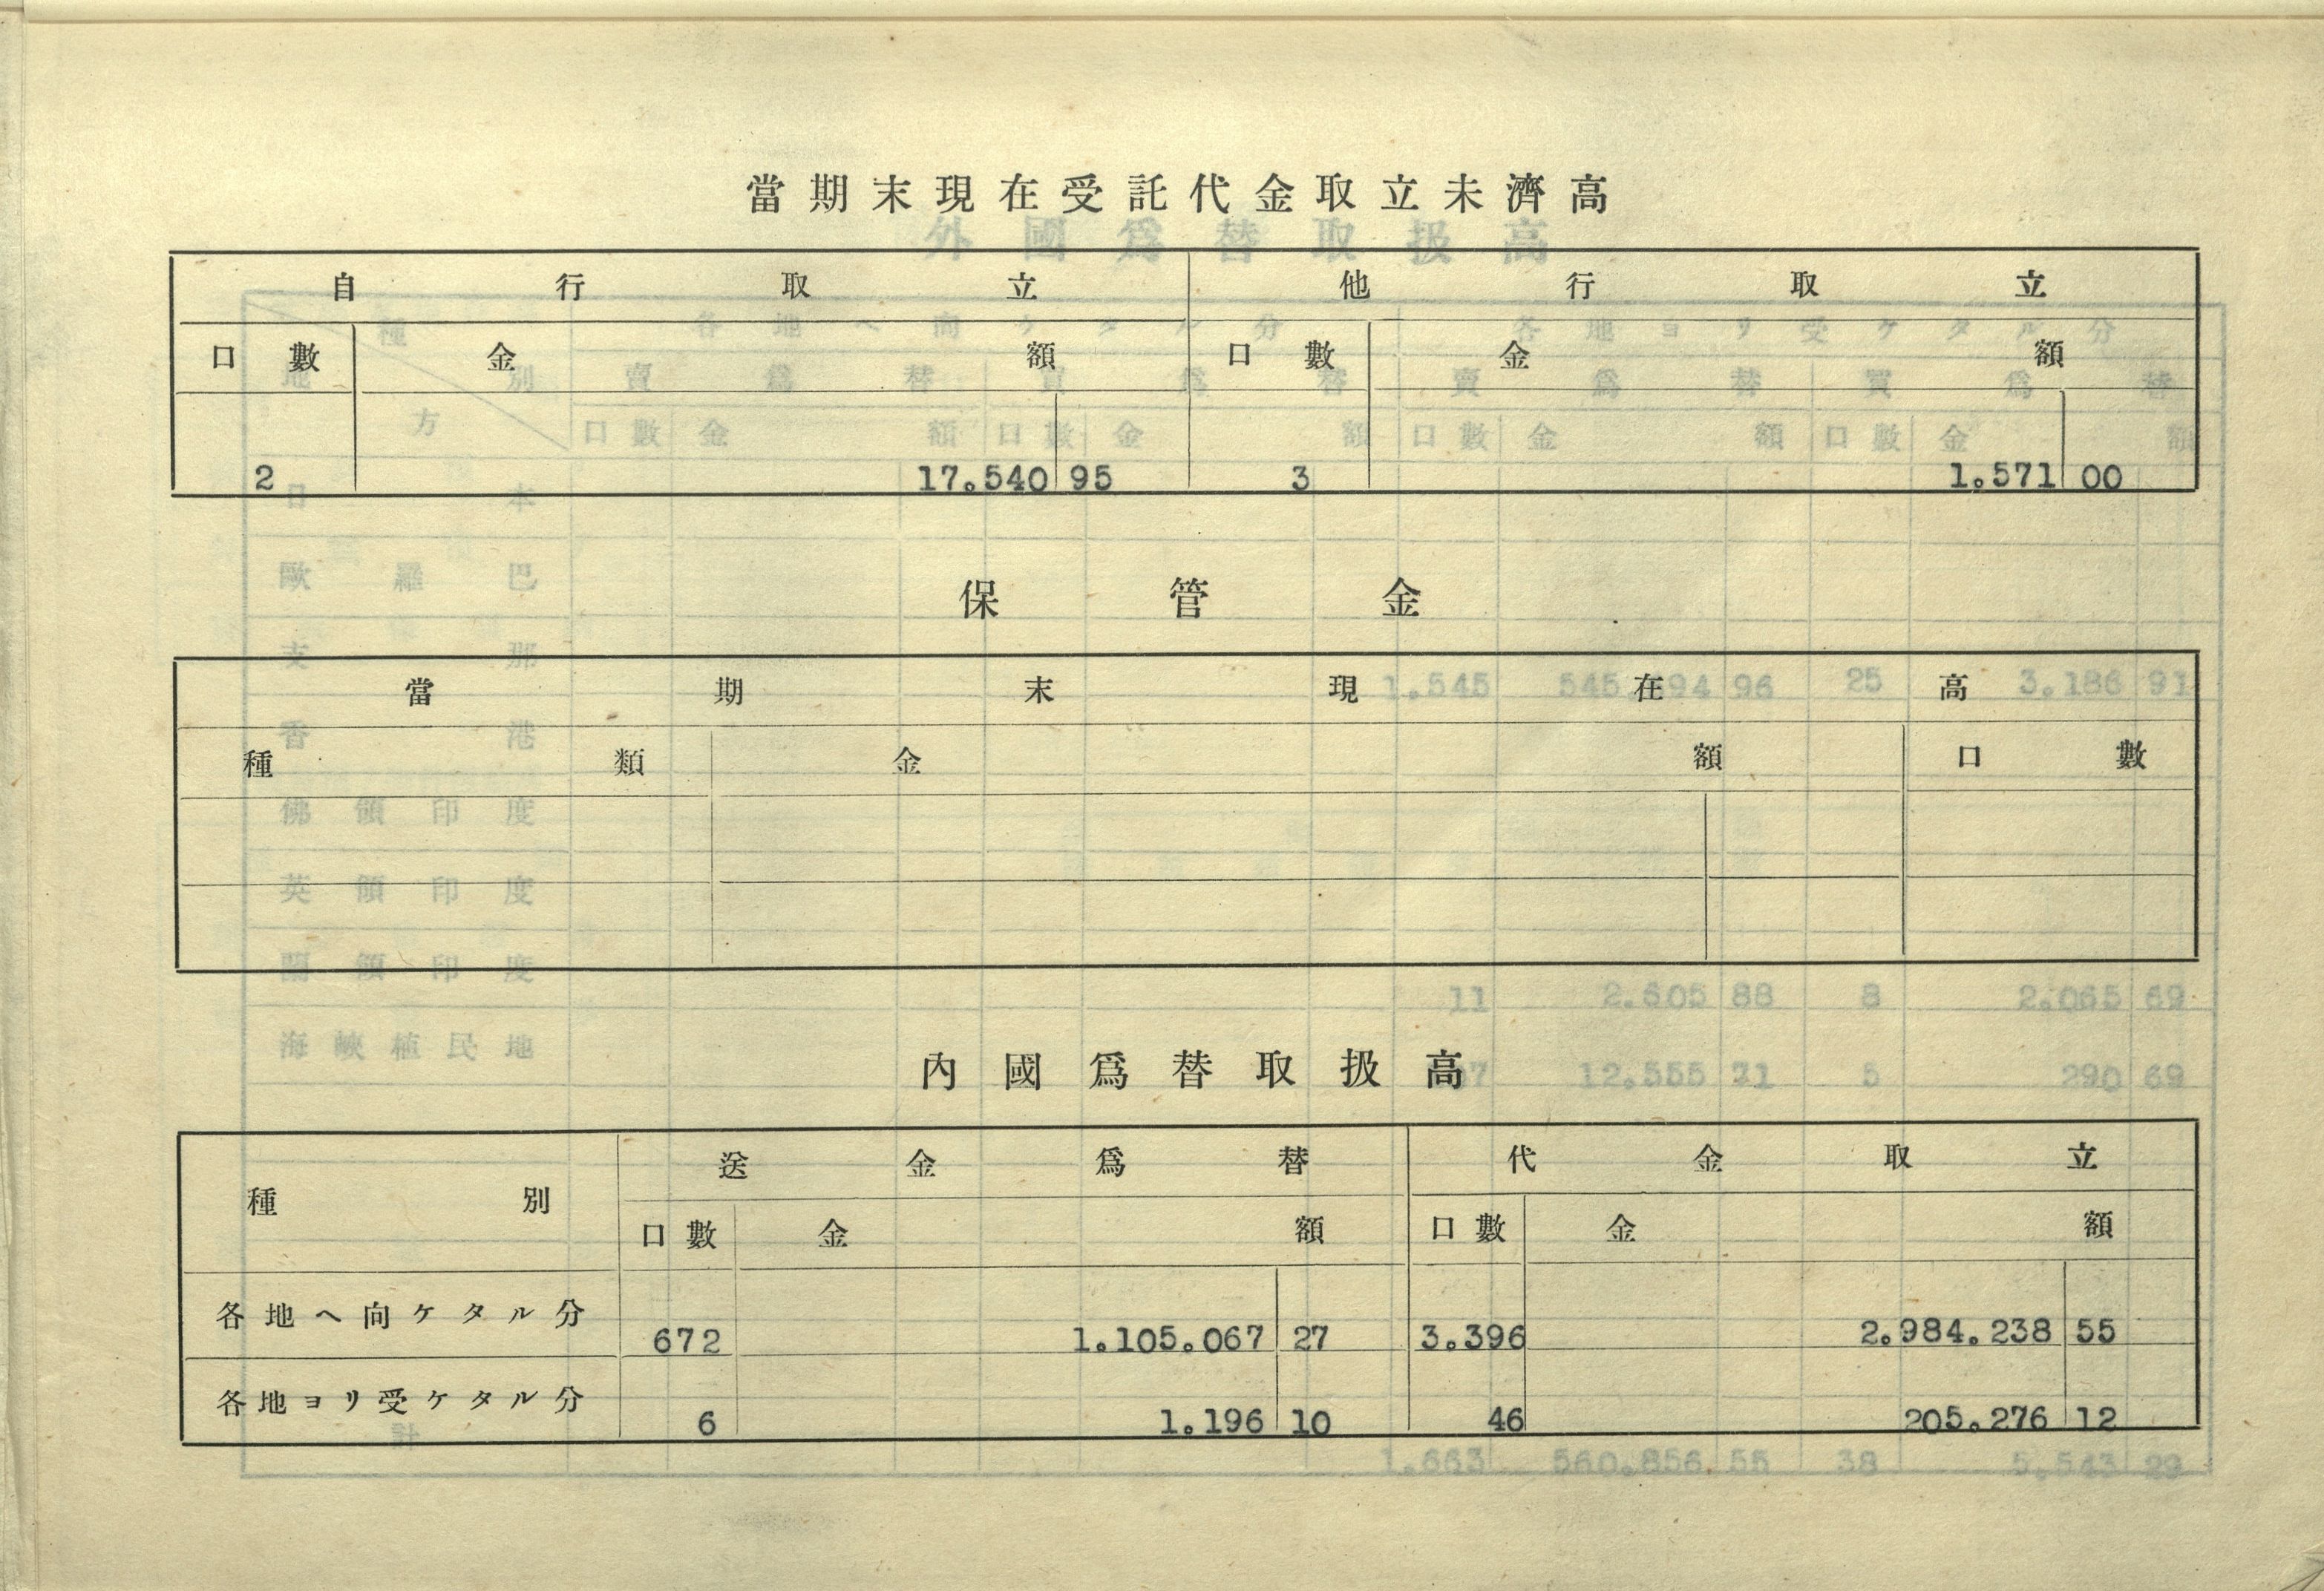 當期末現在受託代金取立未濟高
自行取立 他行取立
口數 金額 口數 金額
2 17.540 95 3 1.571 00
保管金
當期末現在高
種類 金額 口數
內國爲替取扱高
種別 送金爲替 代金取立
口數 金額 口數 金額
各地ヘ向ケタル分 672 1.105.067 27 3.396 2.984.238 55
各地ヨリ受ケタル分 6 1.196 10 46 205.276 12